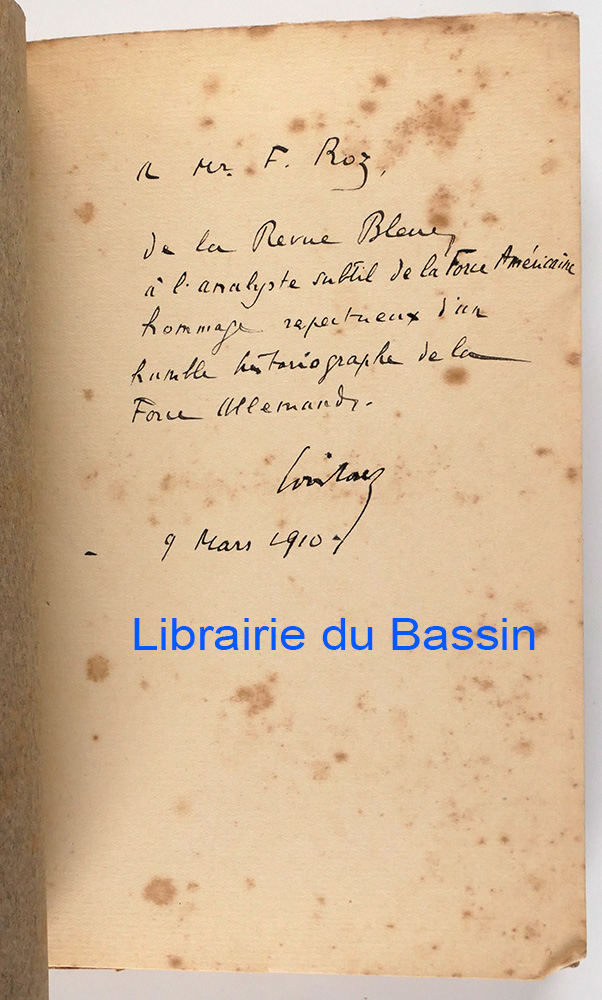 A Mr. F. Roz,
de la Revue Bleue,
à l'analyste subtil de la Force Américaine
hommage respectueux d'un
humble historiographe de la
Force Allemande.
9 Mars 1910.
Librairie du Bassin